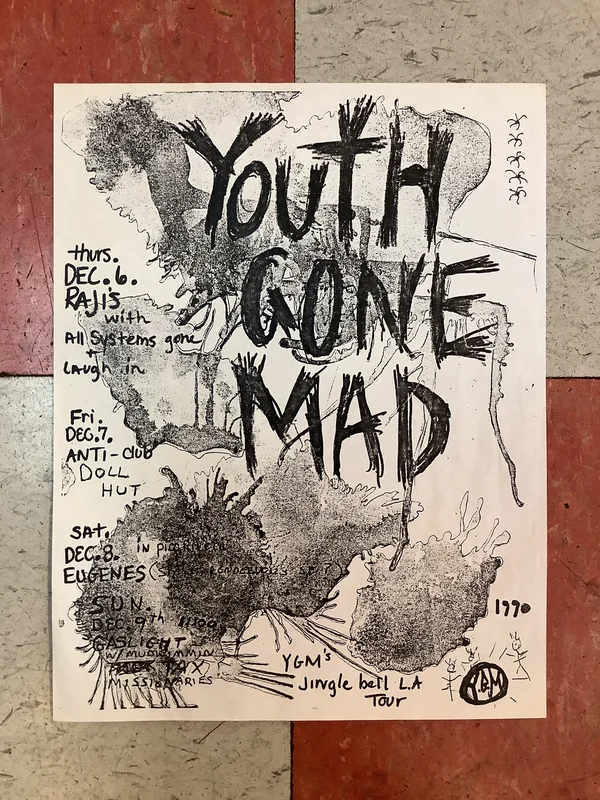 YOUTH
GONE
MAD
thurs.
DEC. 6.
RAJI'S
with
All Systems gone
+
LAugh in
Fri.
DEC. 7.
ANTI-club
DOLL
HUT
SAT.
DEC. 8. in pico
EUGENES
SUN.
DEC. 9th 11:00
GASLIGHT
TAX
MISSIONARIES
1990
YGM's
Jingle bell L.A
Tour
Y.G.M